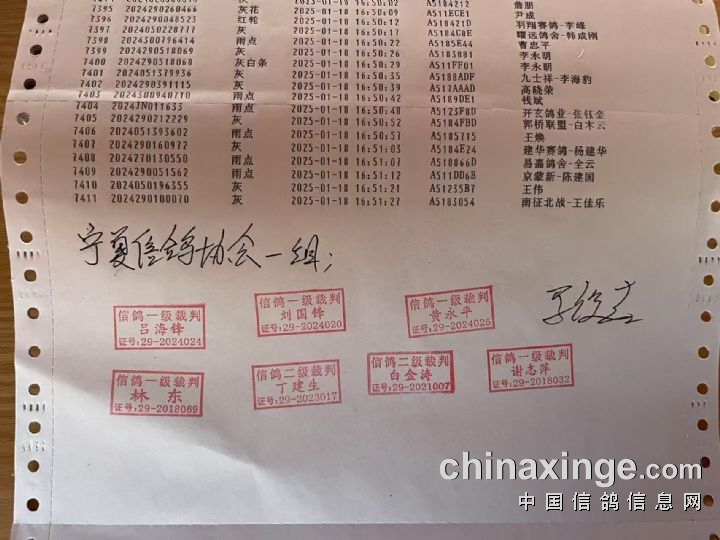 7395 2024290260466 灰花 2025-01-18 16:50:09 A511ECE1 尹成
7396 2024290048523 红轮 2025-01-18 16:50:12 A518421D 羽翔赛鸽-李峰
7397 2024050228777 灰 2025-01-18 16:50:17 A5184C8E 曜远鸽舍-韩成刚
7398 2024300796414 雨点 2025-01-18 16:50:22 A5185E44 曹忠平
7399 2024290518069 灰 2025-01-18 16:50:26 A5183881 李永明
7400 2024290518068 灰白条 2025-01-18 16:50:29 A511FF01 李永明
7401 2024051379936 灰 2025-01-18 16:50:35 A5188ADF 九士祥-李海豹
7402 2024290391115 灰 2025-01-18 16:50:39 A517AAAD 高晓荣
7403 2024300940710 雨点 2025-01-18 16:50:42 A5189DE1 钱斌
7404 2024JN011633 雨点 2025-01-18 16:50:48 A5123F8D 开玄鸽业-张钰金
7405 2024290212229 灰 2025-01-18 16:50:52 A5184FBD 郭桥联盟-白木云
7406 2024051393602 雨点 2025-01-18 16:50:57 A5185715 王焕
7407 2024290160972 灰 2025-01-18 16:51:03 A5184E24 建华赛鸽-杨建华
7408 2024270130550 雨点 2025-01-18 16:51:07 A518866D 易嘉鸽舍-全云
7409 2024290051562 雨点 2025-01-18 16:51:12 A511DD6B 京蒙新-陈建国
7410 2024050196355 灰 2025-01-18 16:51:21 A51235B7 王伟
7411 2024290100070 灰 2025-01-18 16:51:27 A5183054 南征北战-王佳乐
宁夏信鸽协会一组;
信鸽一级裁判
吕海锋
证号:29-2024024
信鸽一级裁判
刘国锋
证号:29-2024020
信鸽一级裁判
黄永平
证号:29-2024025
信鸽一级裁判
林 东
证号:29-2018069
信鸽二级裁判
丁建生
证号:29-2023017
信鸽二级裁判
白金涛
证号:29-2021007
信鸽一级裁判
谢志萍
证号:29-2018032
chinaxinge.com
中国信鸽信息网